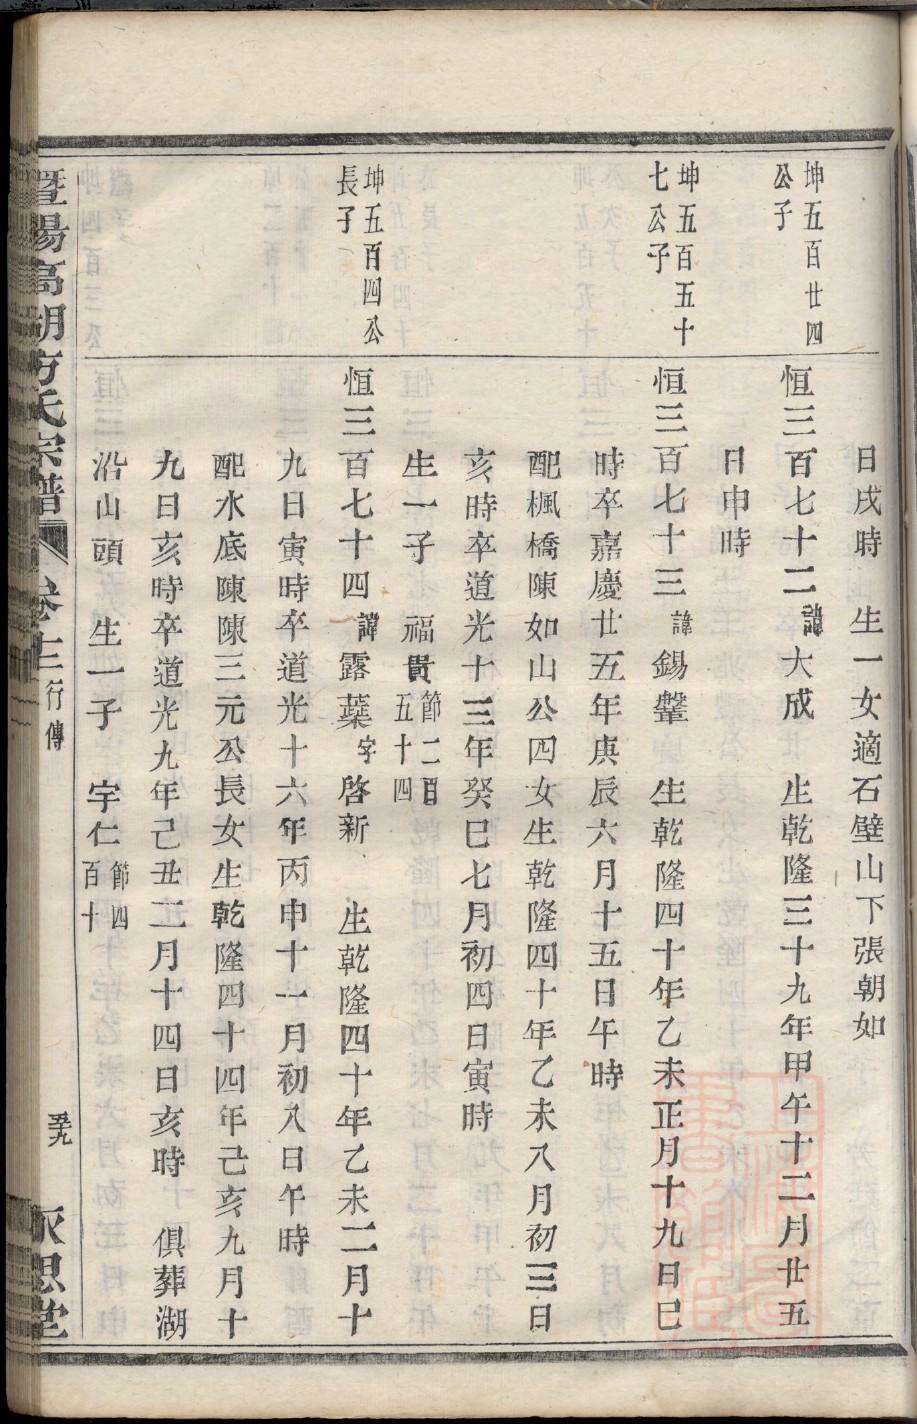 日戌時　生一女適石壁山下張朝如
坤五百廿四
公子
恒三百七十二諱大成　生乾隆三十九年甲午十二月廿五
日申時
坤五百五十
七公子
恒三百七十三諱錫鑾　生乾隆四十年乙未正月十九日巳
時卒嘉慶廿五年庚辰六月十五日午時
配楓橋陳如山公四女生乾隆四十年乙未八月初三日
亥時卒道光十三年癸巳七月初四日寅時
生一子　福貴節二百五十四
坤五百四公
長子
恒三百七十四諱露蕖字啓新　生乾隆四十年乙未二月十
九日寅時卒道光十六年丙申十一月初八日午時
配水底陳陳三元公長女生乾隆四十四年己亥九月十
九日亥時卒道光九年己丑二月十四日亥時　俱葬湖
沿山頭　生一子　宇仁節四百十
暨陽高湖方氏宗譜　卷十二　行傳　五十九　永思堂